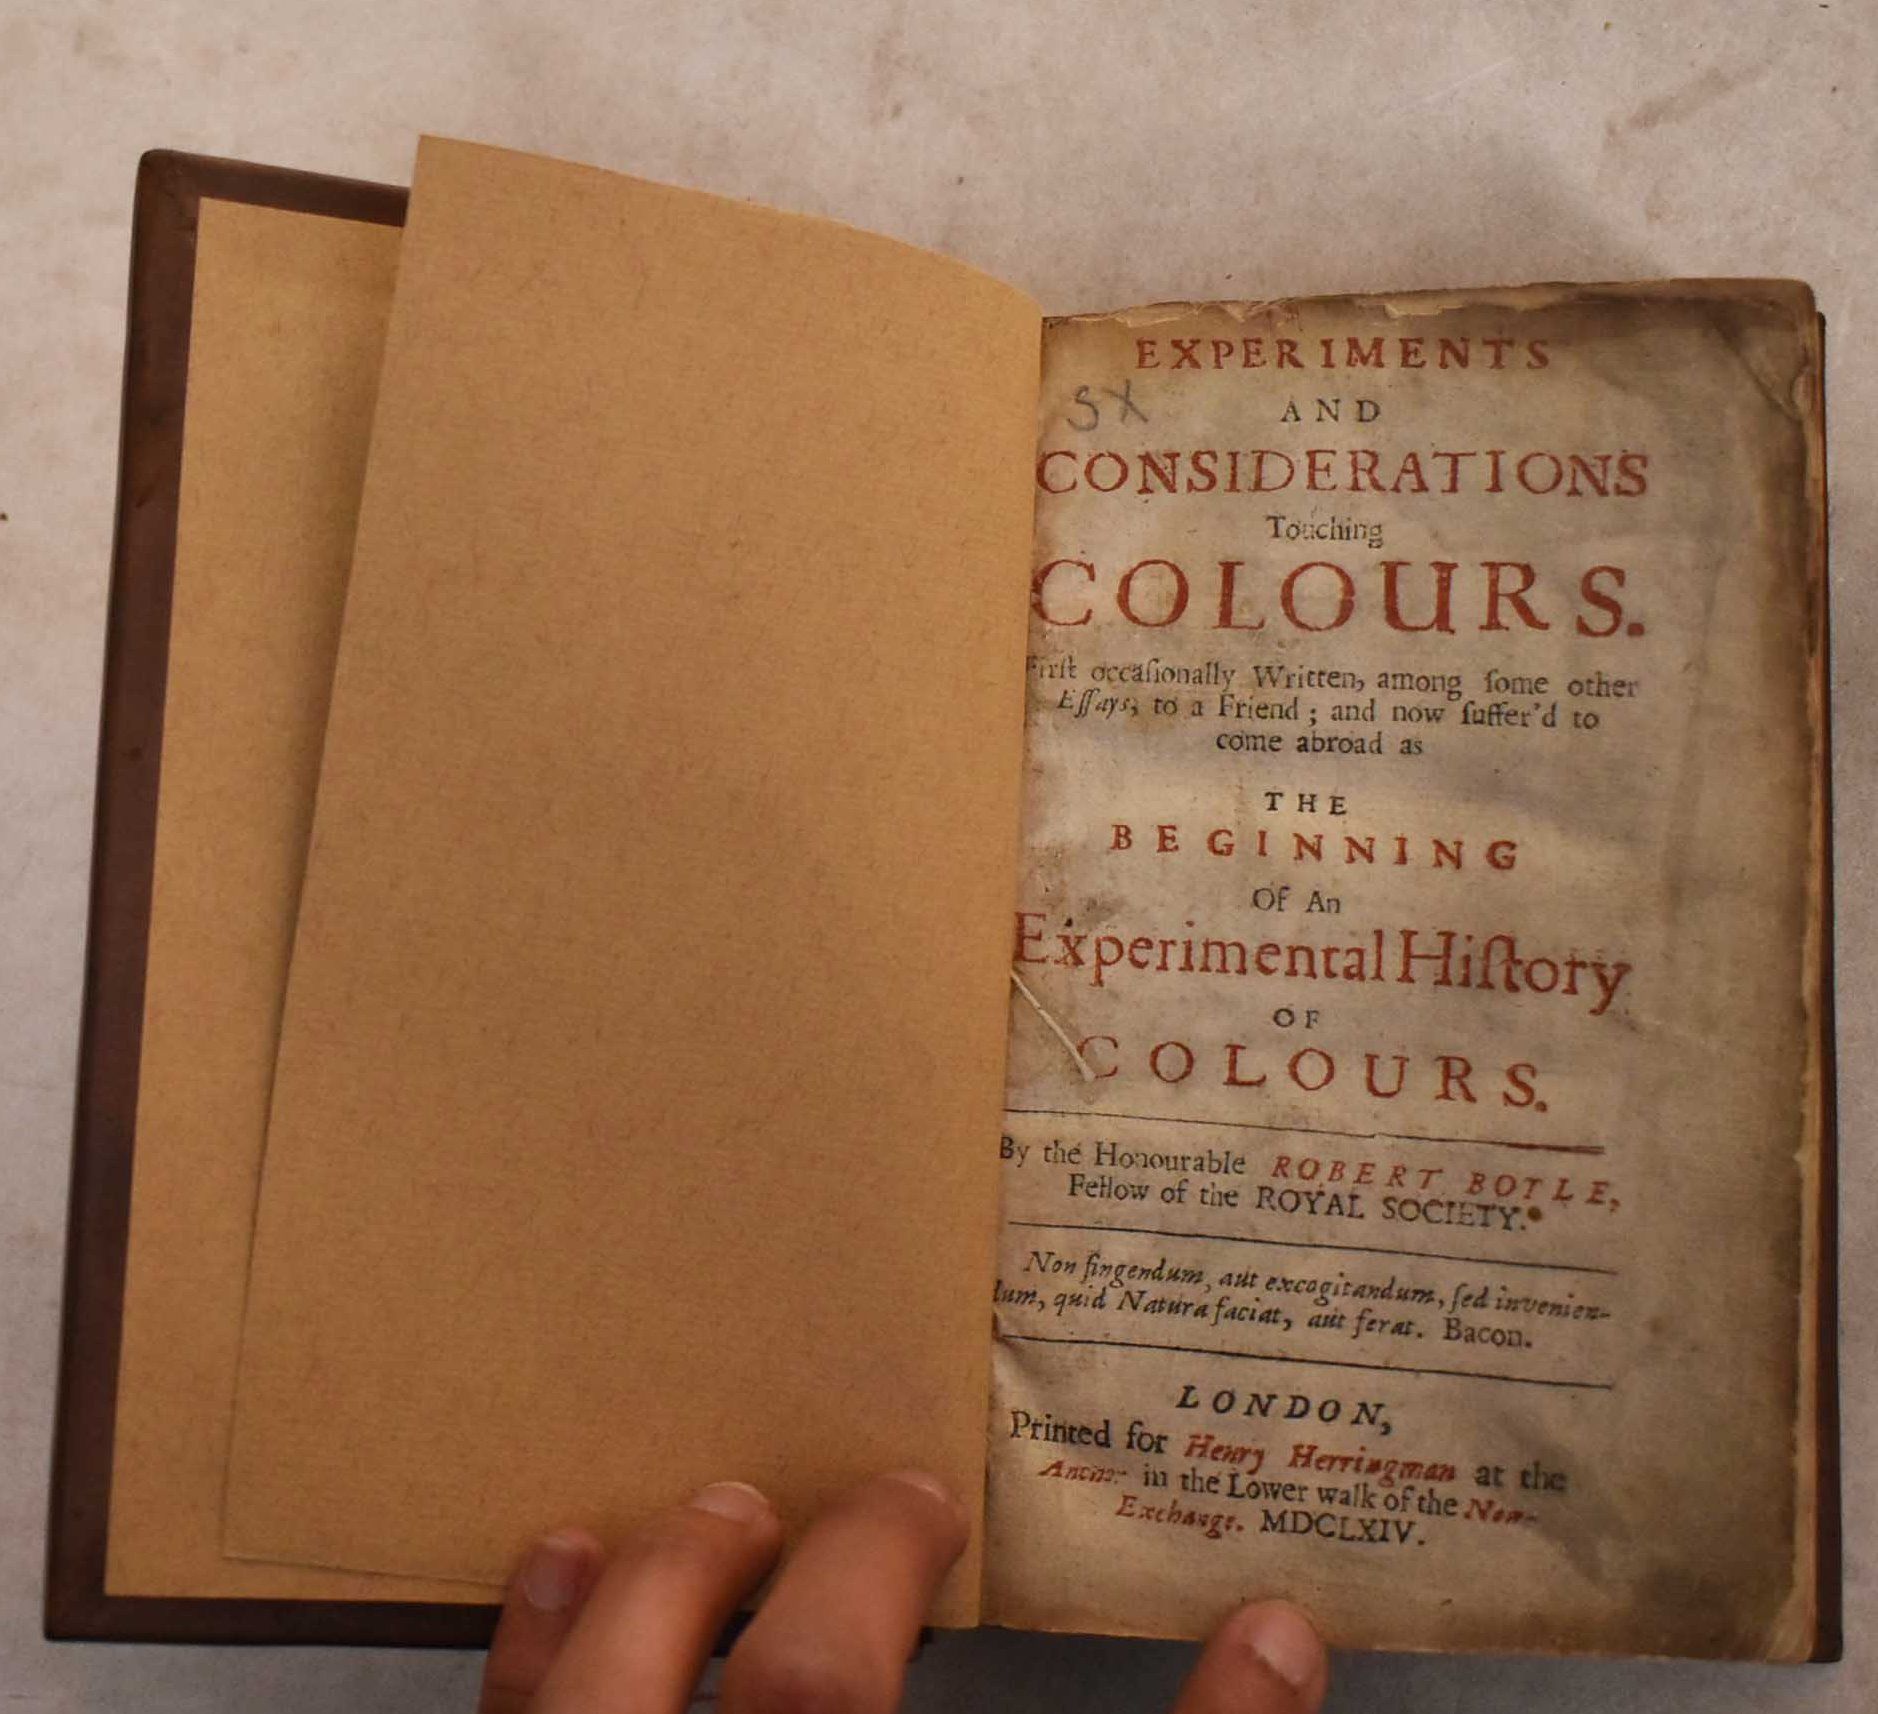 EXPERIMENTS
SX
AND
CONSIDERATIONS
Touching
COLOURS.
Firſt occaſionally Written, among ſome other
Eſſays, to a Friend ; and now ſuffer'd to
come abroad as
THE
BEGINNING
Of An
Experimental Hiſtory
OF
COLOURS.
By the Honourable ROBERT BOYLE,
Fellow of the ROYAL SOCIETY.
Non fingendum, aut excogitandum, ſed invenien-
dum, quid Natura faciat, aut ferat. Bacon.
LONDON,
Printed for Henry Herringman at the
Anchor in the Lower walk of the New-
Exchange. MDCLXIV.